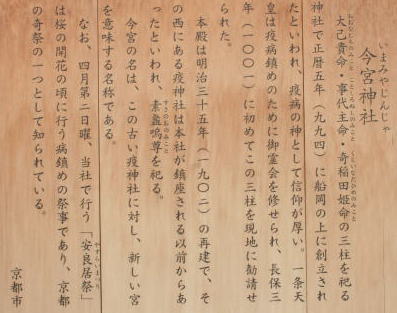 いまみやじんじゃ
今宮神社
大己貴命・事代主命・奇稲田姫命の三柱を祀る
神社で正暦五年（九九四）に船岡の上に創立され
たといわれ、疫病の神として信仰が厚い。一条天
皇は疫病鎮めのために御霊会を修せられ、長保三
年（一〇〇一）に初めてこの三柱を現地に勧請せ
られた。
本殿は明治三十五年（一九〇二）の再建で、そ
の西にある疫神社は本社が鎮座される以前からあ
ったといわれ、素盞嗚尊を祀る。
今宮の名は、この古い疫神社に対し、新しい宮
を意味する名称である。
なお、四月第二日曜、当社で行う「安良居祭」
は桜の開花の頃に行う病鎮めの祭事であり、京都
の奇祭の一つとして知られている。
京都市